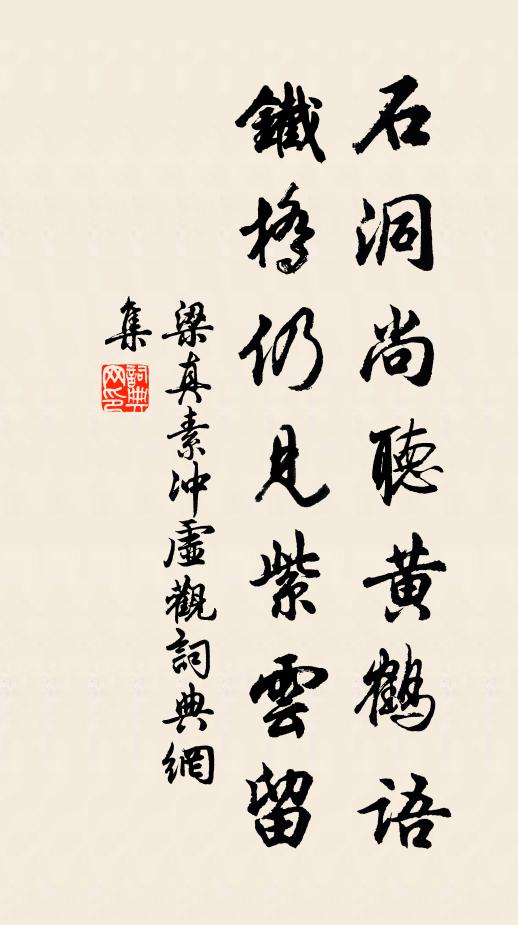 石洞尚聽黄鶴語
鐵橋仍見紫雲留
梁真素冲虛觀詞典網
集
詞典
网印